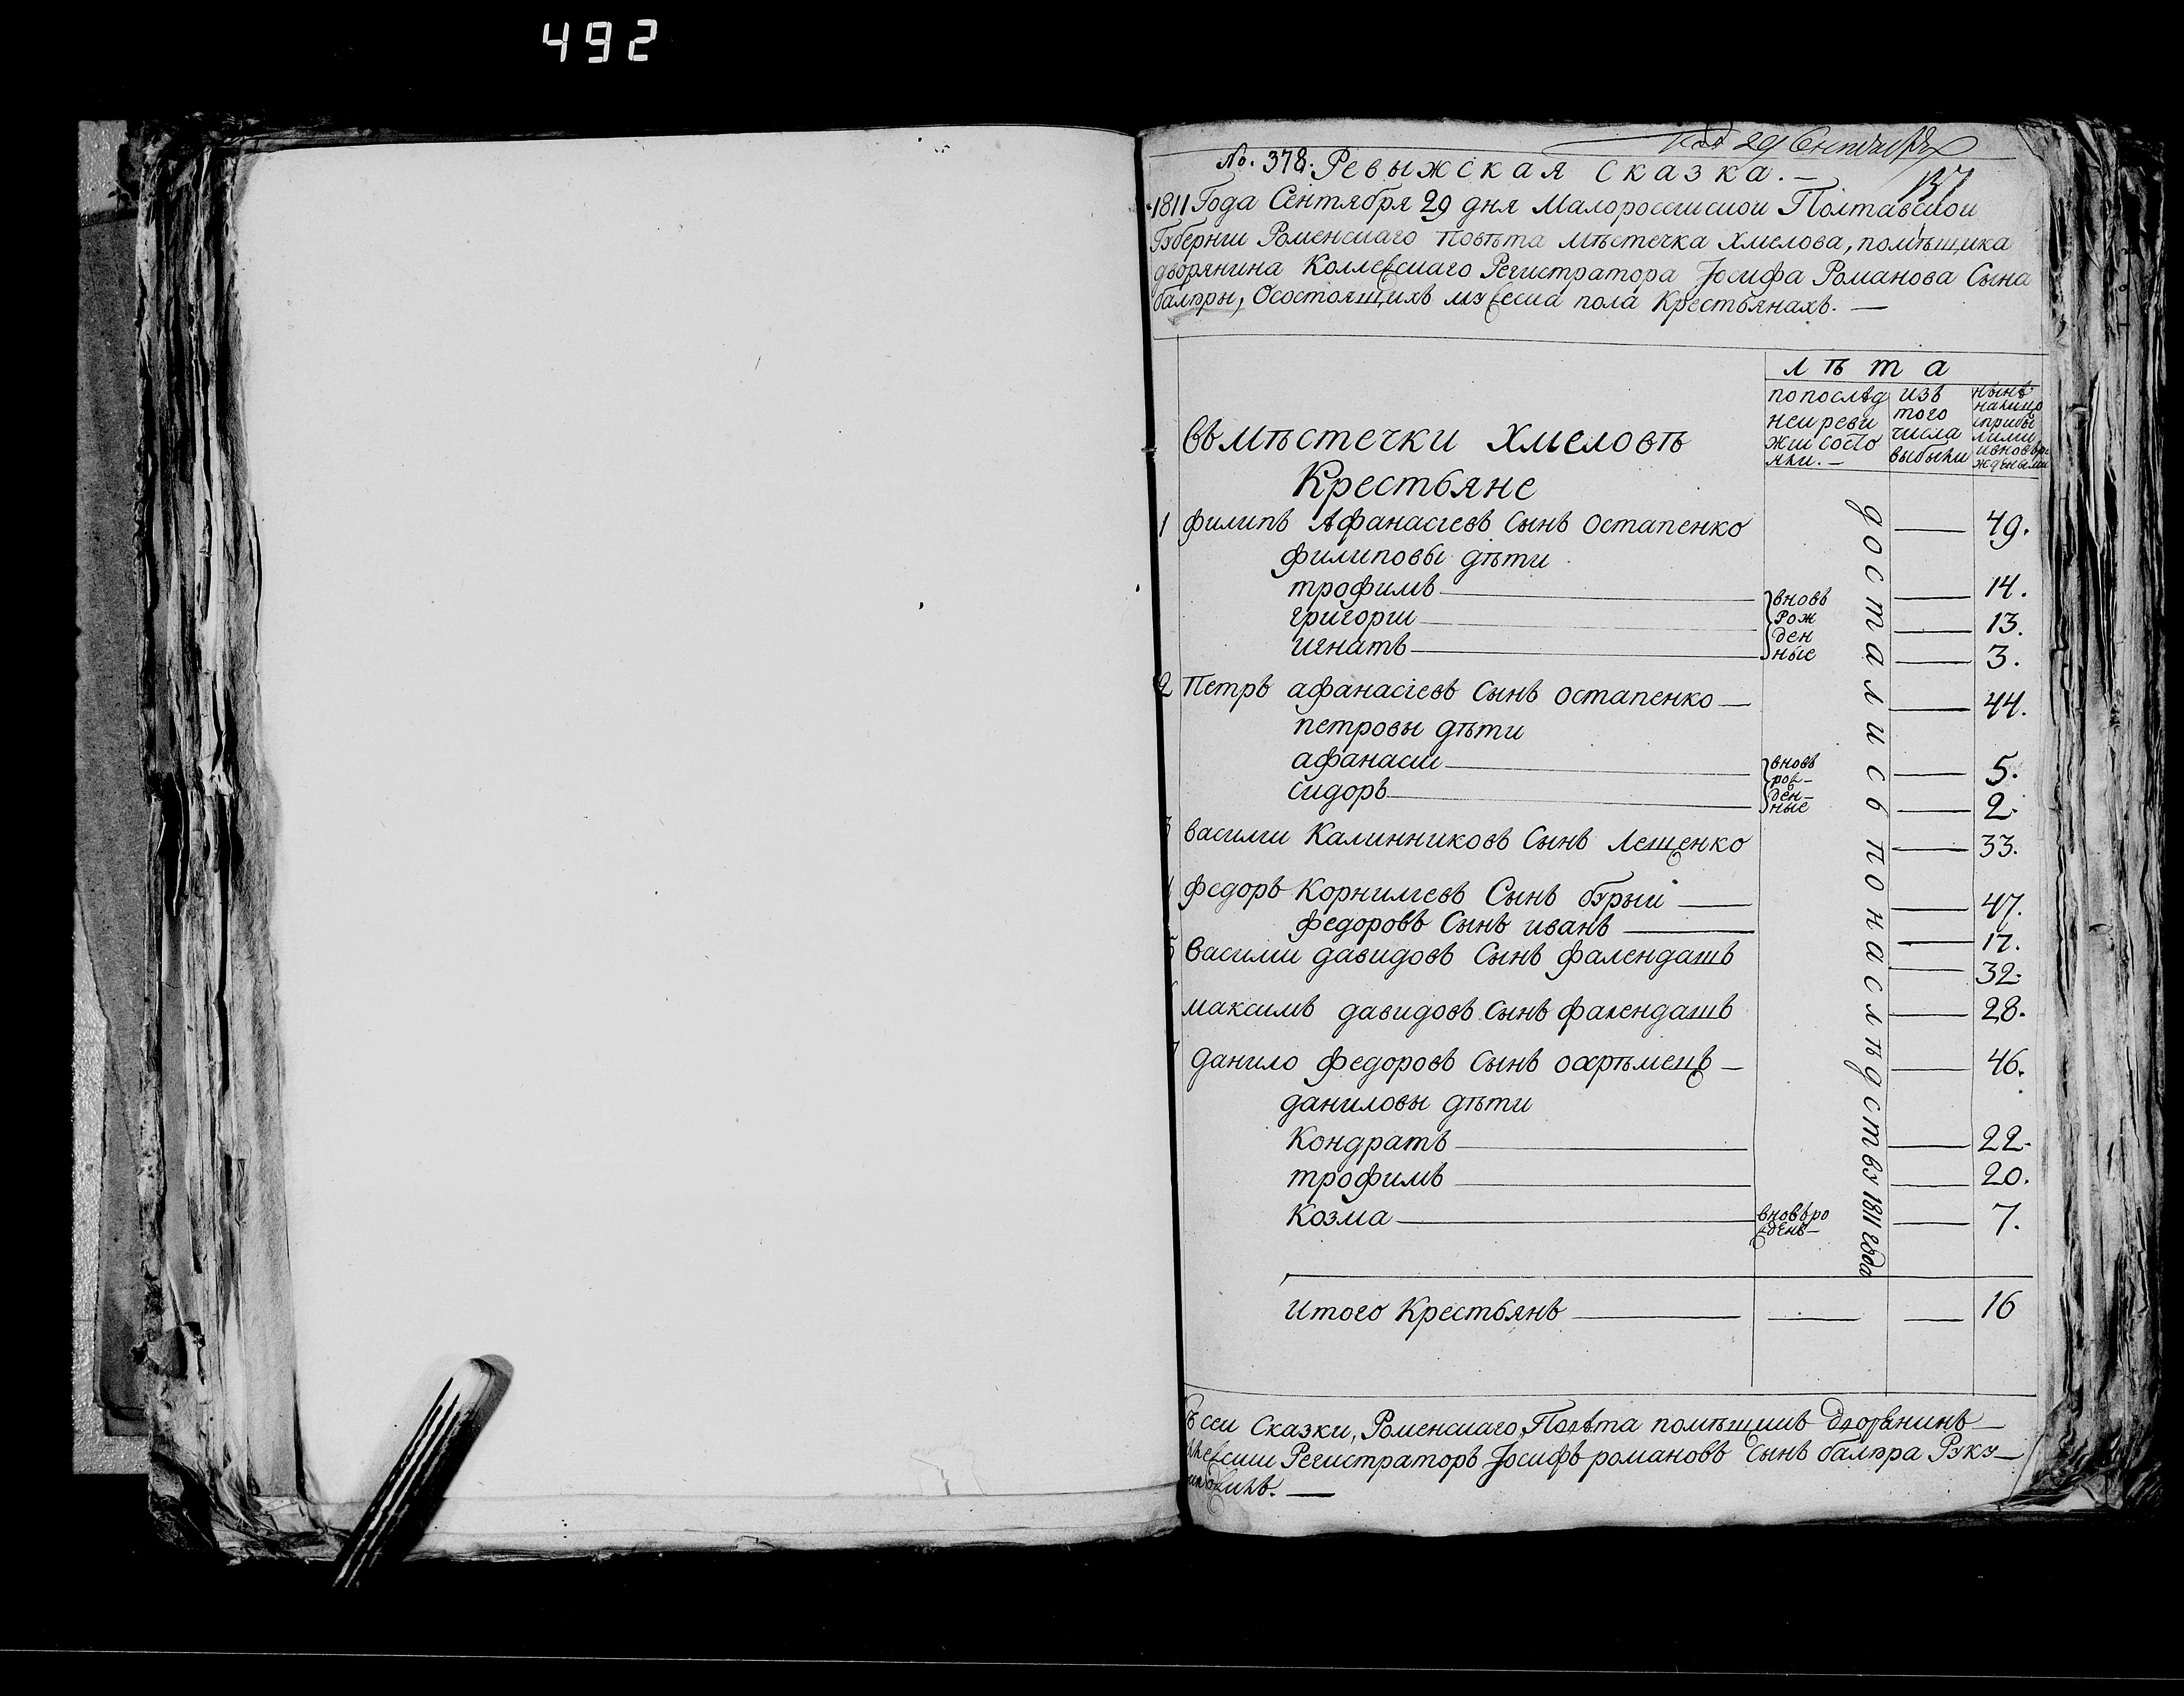 492
29 Сентября
No. 378. Ревыжская Сказка.—
137
1811 Года Сентября 29 дня Малоросгискои Полтавскои
Губернги Роменскаго повѣта мѣстечка Хмелова, помѣщика
дворянина Коллежскаго Регистратора Іосифа Романова Сына
балвры, О состоящихъ мужеска пола Крестьянахъ.—
лѣта
по послѣд неи реви жги состо яли.—
изъ того числа выбыли
нынѣ налицо
въ мѣстечки Хмеловѣ
Крестьяне
1 филипъ Афанасгевъ Сынъ Остапенко — 49.
филиповы дѣти
трофимъ — вновь — 14.
григорги — рож ден — 13.
игнатъ — ные — 3.
2 Петръ афанасгевъ Сынъ остапенко — 44.
петровы дѣти
афанасги — вновь — 5.
сидоръ — ден-ные — 2.
3 василги Калинниковъ Сынъ Лещенко — 33.
федоръ Корнилгевъ Сынъ бурыи — 47.
федоровъ Сынъ иванъ — 17.
5 василги давидовъ Сынъ фалендашъ — 32.
максимъ давидовъ Сынъ фалендашъ — 28.
7 данило федоровъ Сынъ — 46.
даниловы дѣти
Кондратъ — 22.
трофимъ — 20.
Козма — вновьро жденъ — 7.
достались по наслѣдству 1811 года
Итого Крестьянъ — 16
сеи Сказки, Роменскаго Повѣта помѣщикъ дворянинъ—
Регистраторъ Іосифъ романовъ Сынъ балвра Руку—